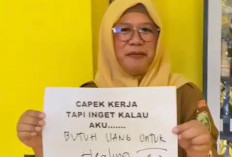 CAPEK KERJA
TAPI INGET KALAU
AKU.......
BUTUH UANG UNTUK
Healing